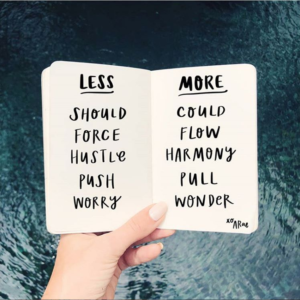 LESS
SHOULD
FORCE
HUSTLe
PUSH
WORRY
MORE
COULD
FLOW
HARMONY
PULL
WONDER
xo
ARae